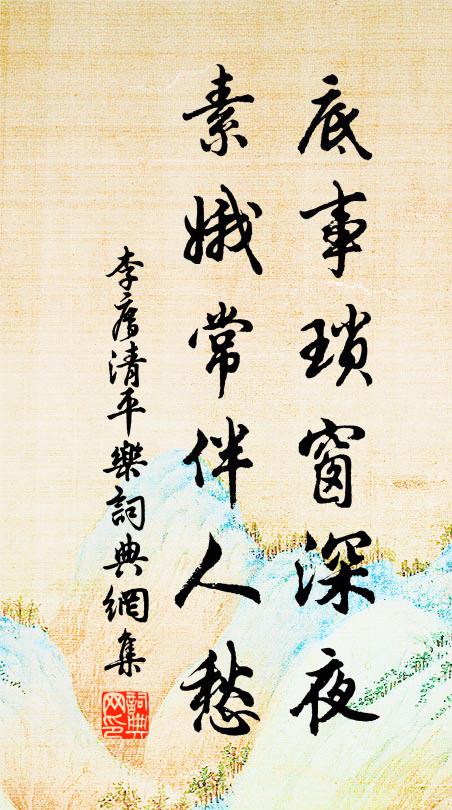 底事瑣窗深夜
素娥常伴人愁
李廌清平樂詞典網集
詞典網印